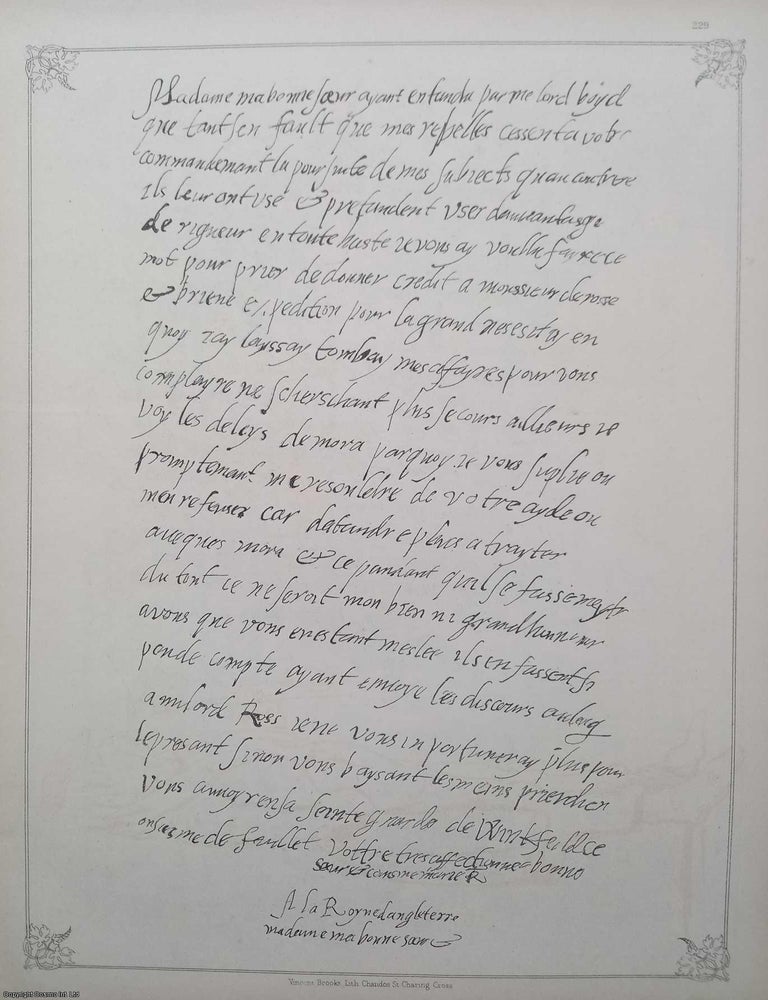 229
Madame ma bonne sœur ayant entandu par me lord boyd
que tant sen fault que mes rebelles cessent a votre
commandemant la poursuite de mes subiects quau contrere
ils leur ont usé & pretandent user davvantasge
de rigueur en toute haste ie vous ay voullu fayre ce
mot pour prier de donner credit a monssieur de rosse
& briene expedition pour la grand nesesitay en
quoy iay layssay tombay mes affayres pour vous
complayre ne scherschant plus secours aillieurs ie
voy les delays de mora par quoy ie vous suplie ou
promptemant me resouldre de votre ayde ou
men refuser car datandre plus a trayter
auvques mora & ce pandant quil se fasse meytr
du tout ce ne seroit mon bien ni grand honneur
a vous que vous en estant meslee ils en fassent si
peu de compte ayant envoye les discours au long
a milord Ross ie ne vous inportuneray plus pour
le presant sinon vous baysant les meins prier dieu
vous en sa seinte garde de Winkfeild ce
onsiesme de feuillet Vottre tres affectionnee bonne
sœur & cousine Marie R
A la Royne dangleterre
madame ma bonne sœur
Vincent Brooks, Lith. Chandos St. Charing Cross
Copyright Cosmo Int. Ltd